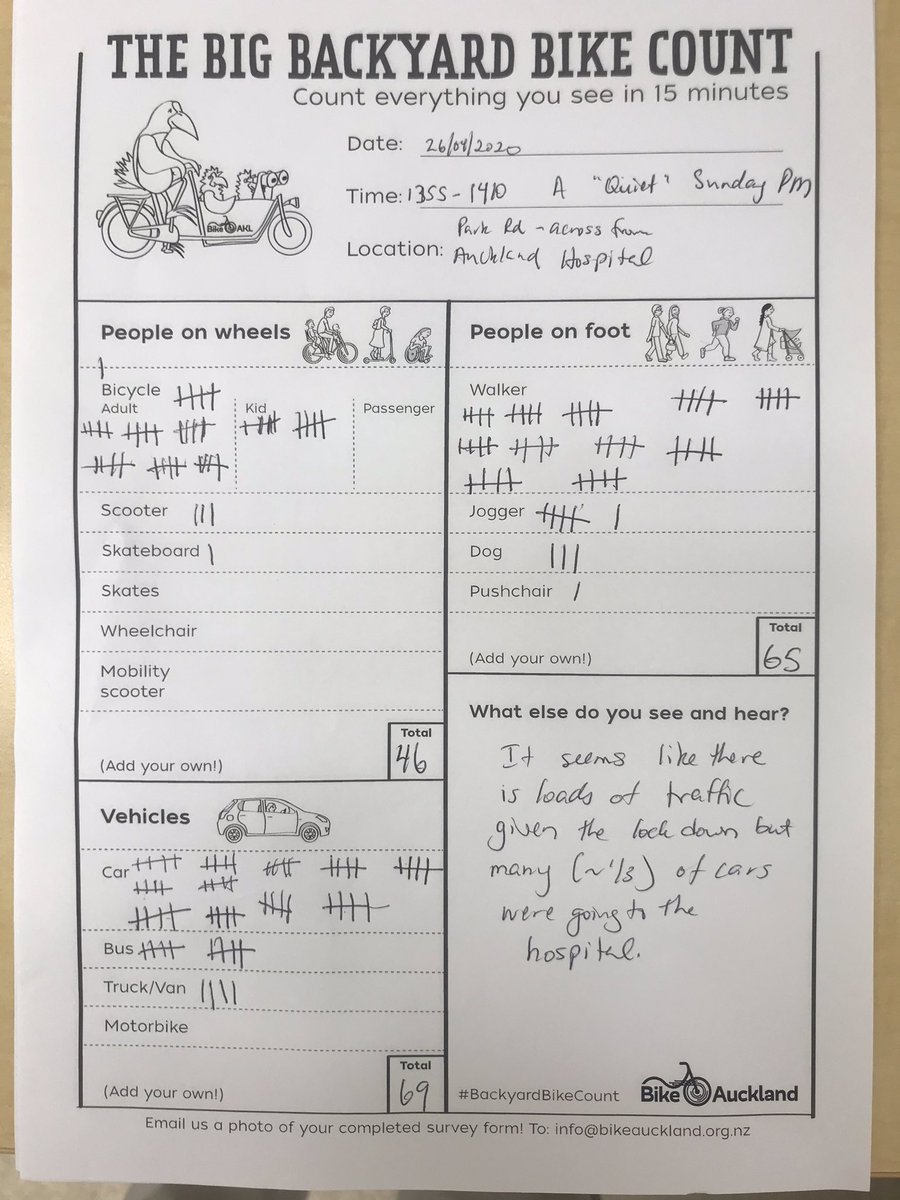 THE BIG BACKYARD BIKE COUNT
Count everything you see in 15 minutes
Date: 26/04/2020
Time: 1355 - 1410 A "Quiet" Sunday PM
Park Rd - across from
Location: Auckland Hospital
Bike AKL
People on wheels
Bicycle
Adult
Kid
Passenger
Scooter
Skateboard
Skates
Wheelchair
Mobility
scooter
(Add your own!)
Total
46
Vehicles
Car
Bus
Truck/Van
Motorbike
(Add your own!)
Total
69
People on foot
Walker
Jogger
Dog
Pushchair
(Add your own!)
Total
65
What else do you see and hear?
It seems like there
is loads of traffic
given the lock down but
many (~1/3) of cars
were going to the
hospital.
#BackyardBikeCount
Bike Auckland
Email us a photo of your completed survey form! To: info@bikeauckland.org.nz